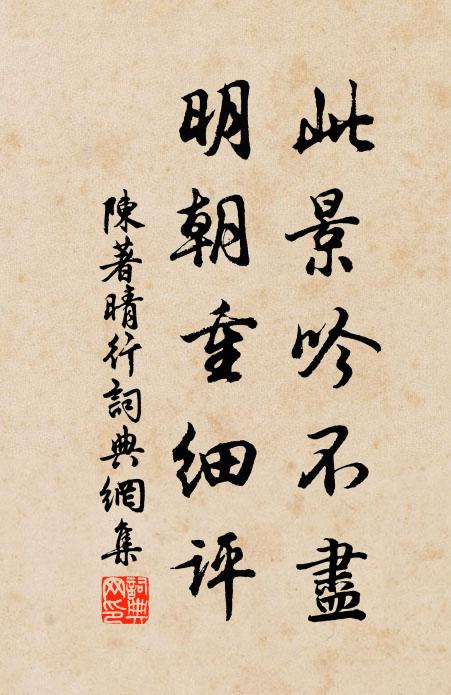 此景吟不盡
明朝重細評
陳著晴行詞典網集
詞典
网印